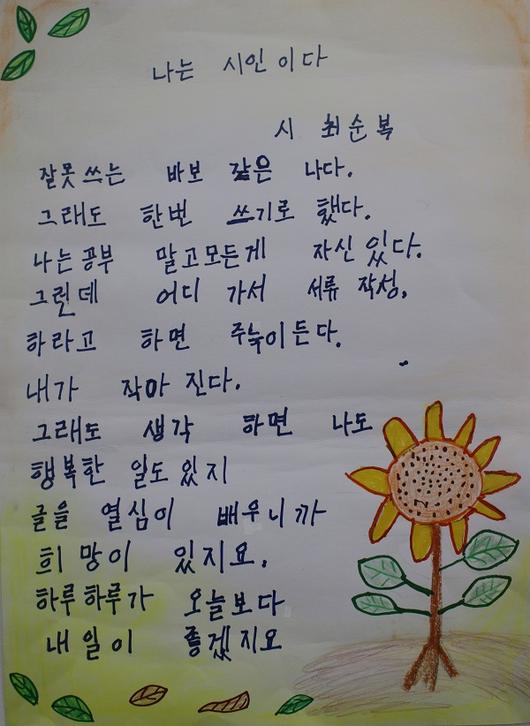 나는 시인 이다
시 최순복
잘못 쓰는 바보 같은 나다.
그래도 한번 쓰기로 했다.
나는 공부 말고 모든게 자신 있다.
그런데 어디 가서 서류 작성,
하라고 하면 주눅이 든다.
내가 작아 진다.
그래도 생각 하면 나도
행복한 일도 있지
글을 열심이 배우니까
희망이 있지요.
하루하루가 오늘보다
내일이 좋겠지요